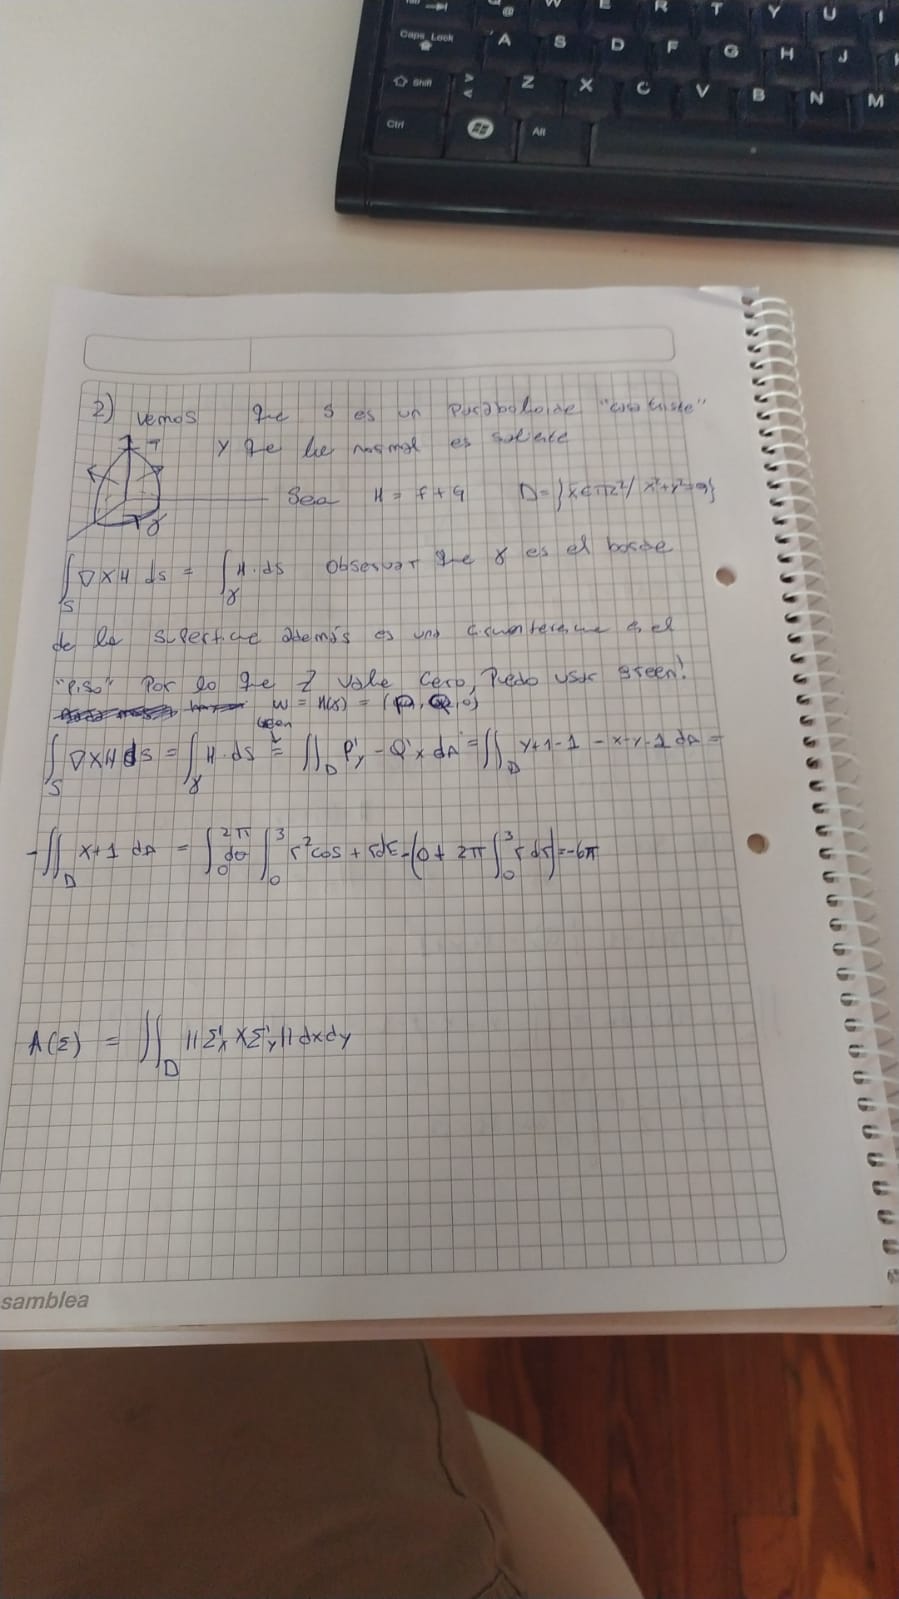 @ W E R T Y U I
Caps Lock A S D F G H J
Shift > < Z X C V B N M
Ctrl Alt
2) Vemos que S es un paraboloide "cara triste"
y que la normal es saliente
Sea H = F + G D = {x̄ ∈ ℝ² / x²+y²=9}
∫_S ∇×H ds = ∫_γ H·ds Observar que γ es el borde
de la superficie además es una circunferencia en el
"Piso" Por lo que Z vale cero, Puedo usar green!
W = H(γ) = (P, Q, 0)
∫_S ∇×H ds = ∫_γ H·ds = ∬_D P'y - Q'x dA = ∬_D y+1-1 -x-y-1 dA =
green
-∬_D x+1 dA = ∫_0^{2π} dθ ∫_0^3 r² cos + r dr = -(0 + 2π ∫_0^3 r dr) = -6π
A(Σ) = ∬_D ||Σ'x × Σ'y|| dx dy
samblea